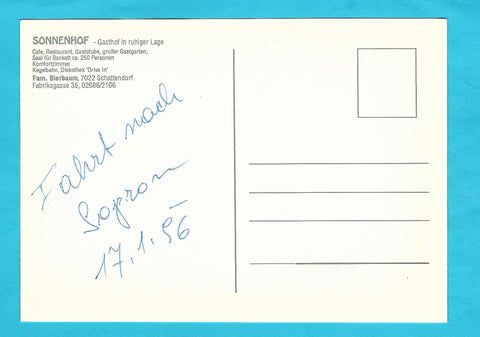 SONNENHOF - Gasthof in ruhiger Lage
Cafe, Restaurant, Gaststube, großer Gastgarten,
Saal für Bankett ca. 250 Personen
Komfortzimmer
Kegelbahn, Diskothek "Drive In"
Fam. Bierbaum, 7022 Schattendorf
Fabriksgasse 35, 02686/2166
Fahrt nach
Sopron
17.1.96